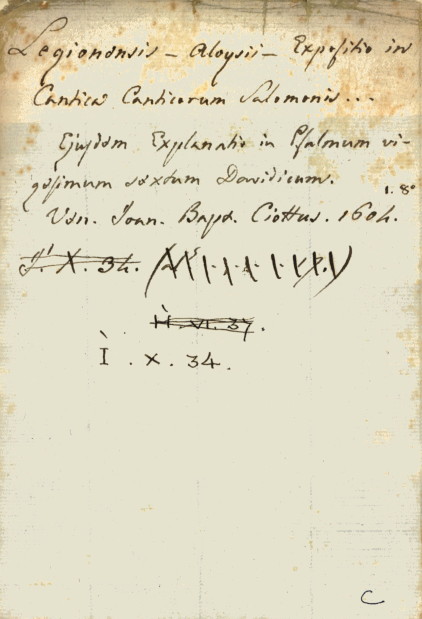 Legionensis - Aloysii - Expositio in
Cantica Canticorum Salomonis...
Ejusdem Explanatio in Psalmum vi-
gesimum sextum Davidicum.
1. 8°
Ven. Ioan. Bapt. Ciottus. 1604.
X. 34.
H. VI. 37.
Ì. X. 34.
C